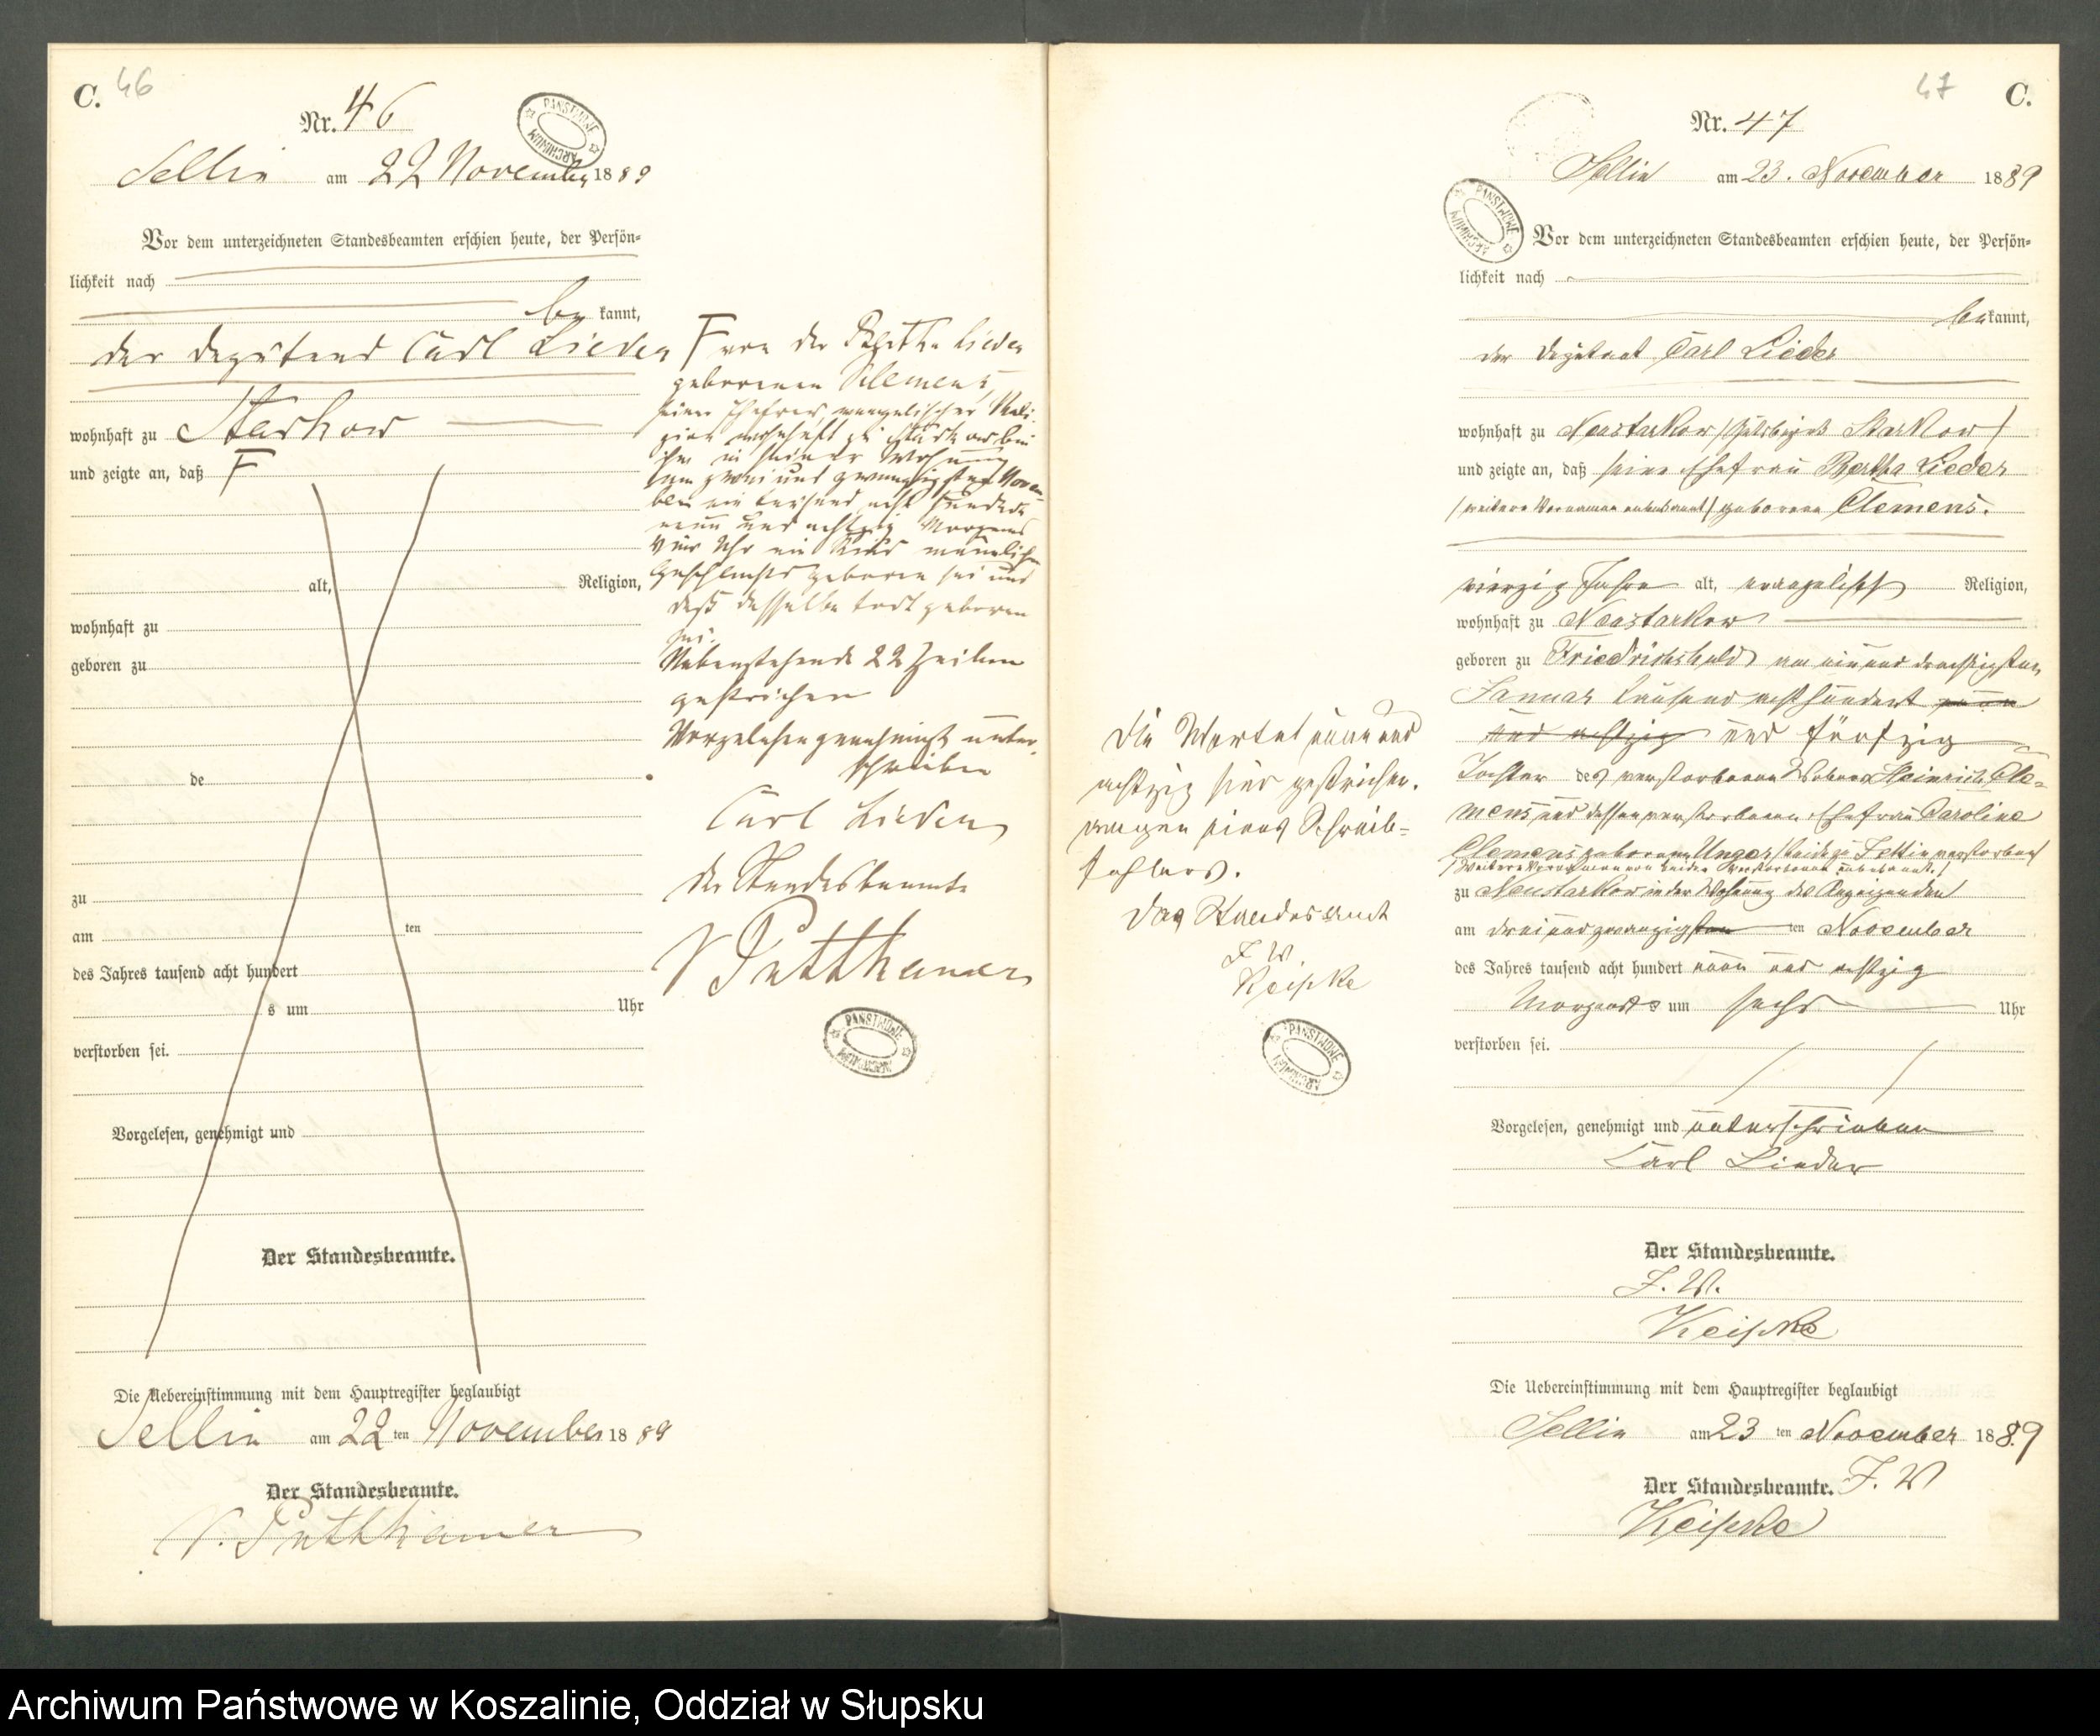 C. 46
Nr. 46
PANSTWOWE ARCHIWUM
Sellin am 22 November 1889
Vor dem unterzeichneten Standesbeamten erschien heute, der Persön=
lichkeit nach
be kannt,
der Deputant Carl Lieder
wohnhaft zu Starkow
und zeigte an, daß F
alt, Religion,
wohnhaft zu
geboren zu
de
zu
am ten
des Jahres tausend acht hundert
s um Uhr
verstorben sei.
Vorgelesen, genehmigt und
Der Standesbeamte.
Die Uebereinstimmung mit dem Hauptregister beglaubigt
Sellin am 22 ten November 1889
Der Standesbeamte.
v. Puttkamer
F von der Bertha Lieder
geborenen Clemens,
seiner Ehefrau, evangelischer Reli-
gion wohnhaft zu Starkow bei
ihm in seiner Wohnung
am zwei und zwanzigsten Novem-
ber ein tausend acht hundert
neun und achtzig Morgens
vier Uhr ein Kind männlichen
Geschlechts geboren sei und
daß dasselbe todt geboren
sei.
Nebenstehende 22 Zeilen
gestrichen
Vorgelesen genehmigt unter-
schrieben
Carl Lieder
der Standesbeamte
v Puttkamer
PANSTWOWE ARCHIWUM
47 C.
Nr. 47
Sellin am 23. November 1889
PANSTWOWE ARCHIWUM
Vor dem unterzeichneten Standesbeamten erschien heute, der Persön=
lichkeit nach
be kannt,
der Deputant Carl Lieder
wohnhaft zu Neustarkow /Gutsbezirk Starkow/
und zeigte an, daß seine Ehefrau Bertha Lieder
/weitere Vornamen unbekannt/ geborene Clemens.
vierzig Jahre alt, evangelisch Religion,
wohnhaft zu Neustarkow
geboren zu Friedrichshuld am ein und dreißigsten
Januar tausend acht hundert neun
und achtzig und fünfzig
Tochter des verstorbenen Webers Heinrich Cle=
mens und dessen verstorbenen Ehefrau Caroline
Clemens geborenen Unger /beide zu verstorben/
/Weitere Vornamen von beiden Verstorbenen unbekannt./
zu Neustarkow in der Wohnung des Anzeigenden
am drei und zwanzigsten ten November
des Jahres tausend acht hundert neun und achtzig
Morgens s um sechs Uhr
verstorben sei.
Vorgelesen, genehmigt und unterschrieben
Carl Lieder
Der Standesbeamte.
I. V.
Keipke
Die Uebereinstimmung mit dem Hauptregister beglaubigt
Sellin am 23 ten November 1889
Der Standesbeamte. I. V
Keipke
Die Worte neun und
achtzig sind gestrichen.
wegen eines Schreib=
fehlers.
Das Standesamt
I V.
Keipke
PANSTWOWE ARCHIWUM
Archiwum Państwowe w Koszalinie, Oddział w Słupsku